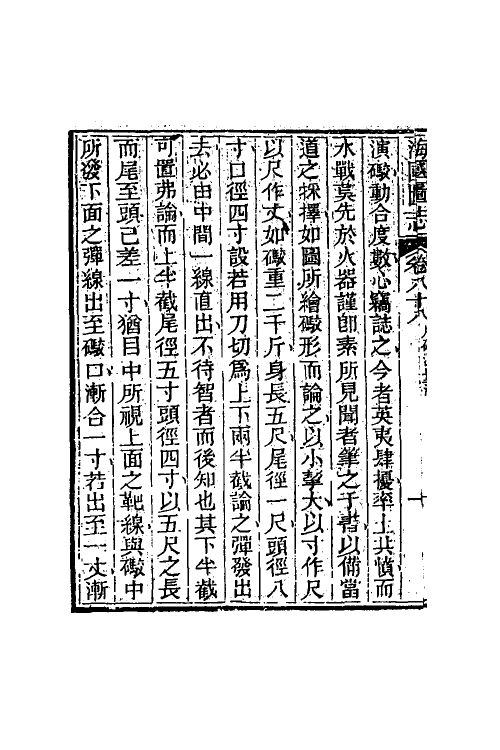 海國圖志
卷八十八
演礮動合度數心竊誌之今者英夷肆擾率土共憤而
水戰莫先於火器謹卽素所見聞者筆之于書以備當
道之採擇如圖所繪礮形而論之以小擊大以寸作尺
以尺作丈如礮重二千斤身長五尺尾徑一尺頭徑八
寸口徑四寸設若用刀切爲上下兩半截論之彈發出
去必由中間一線直出不待智者而後知也其下半截
可置弗論而上半截尾徑五寸頭徑四寸以五尺之長
而尾至頭己差一寸猶目中所視上面之靶線與礮中
所發下面之彈線出至礮口漸合一寸若出至一丈漸